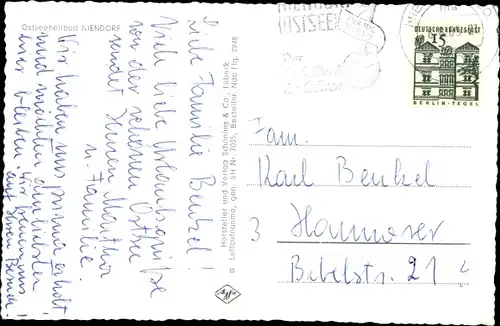 Ostseeheilbad NIENDORF
Liebe Familie Benkel!
Viele liebe Urlaubsgrüße
von der schönen Ostsee
sendet Ihnen
u. Familie.
Wir haben uns prima erholt
und möchten am liebsten
hier bleiben. Wir freuen uns
auf Ihren Besuch!
Hersteller und Verlag Schöning & Co., Lübeck
Luftaufnahme, gen. SH Nr. 2055, Bestellnr. Ndo Flg. 2948
Agfa
OSTSEE
DEUTSCHE BUNDESPOST
15
BERLIN-TEGEL
Fam.
Karl Benkel
3 Hannover
Bebelstr. 21